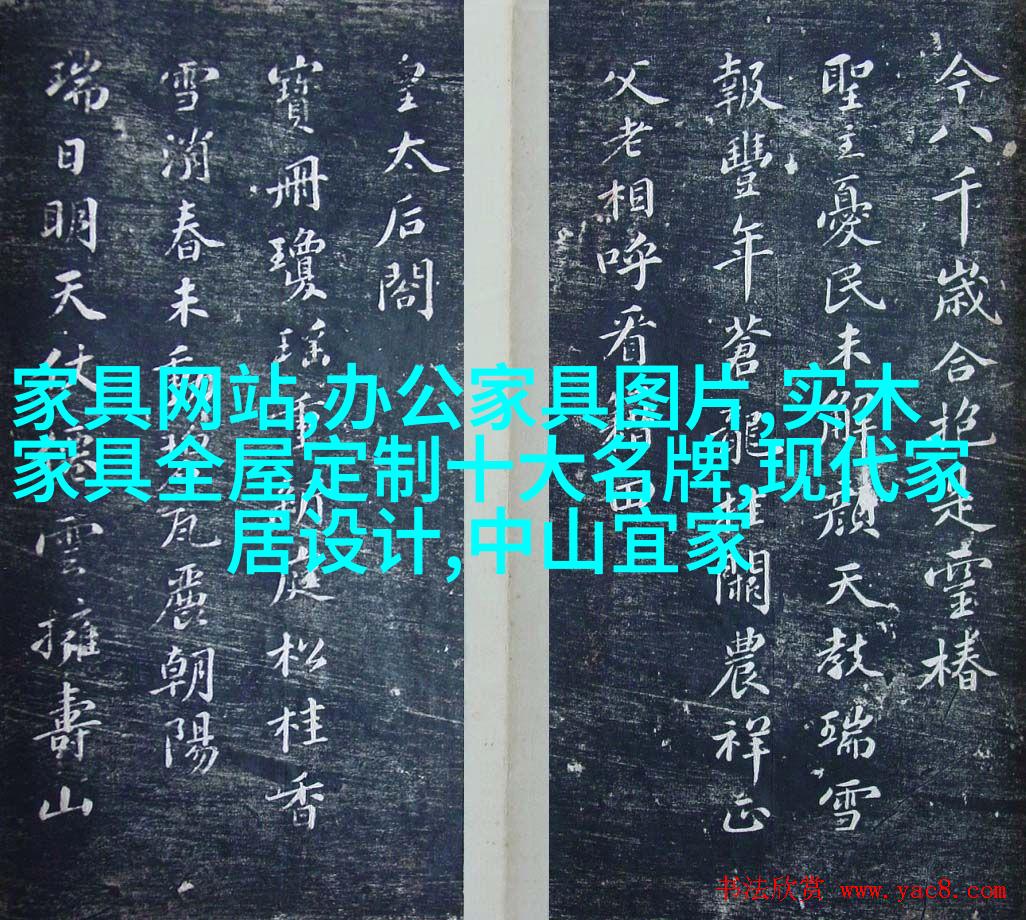 今八千歲合抱是靈椿
聖主憂民未解顏天教瑞雪
報豐年蒼龍挂闕農祥正
父老相呼看籍田
皇太后閣
寶冊瓊瑤重新庭松桂香
雪消春未動碧瓦麗朝陽
瑞日明天仗雲擁壽山
家具网站,办公家具图片,实木
家具全屋定制十大名牌,现代家
居设计,中山宜家
书法欣赏 www.yac8.com